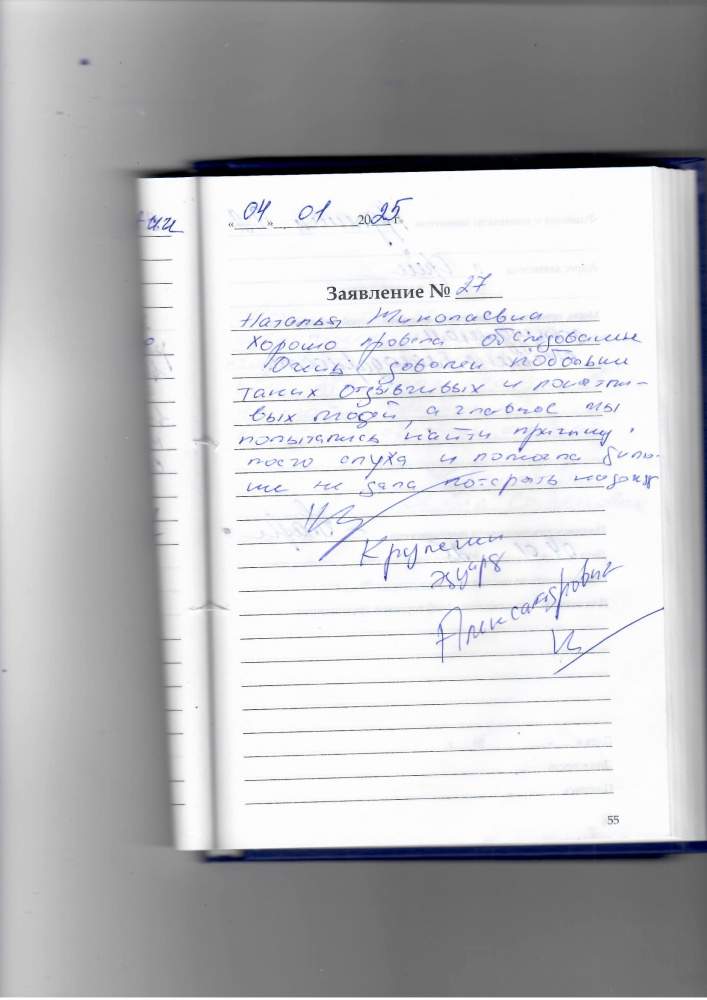 «04» 01 2025 г.
Заявление № 27
Наталья Николаевна
хорошо провела обследование
Очень доволен побольши
таких отзывчивых и понятли-
вых людей, а главное мы
попытались найти причину.
моего слуха и помогла боль-
ше не дала потерять надежд
Крупенин
Эдуард
Александрович
55